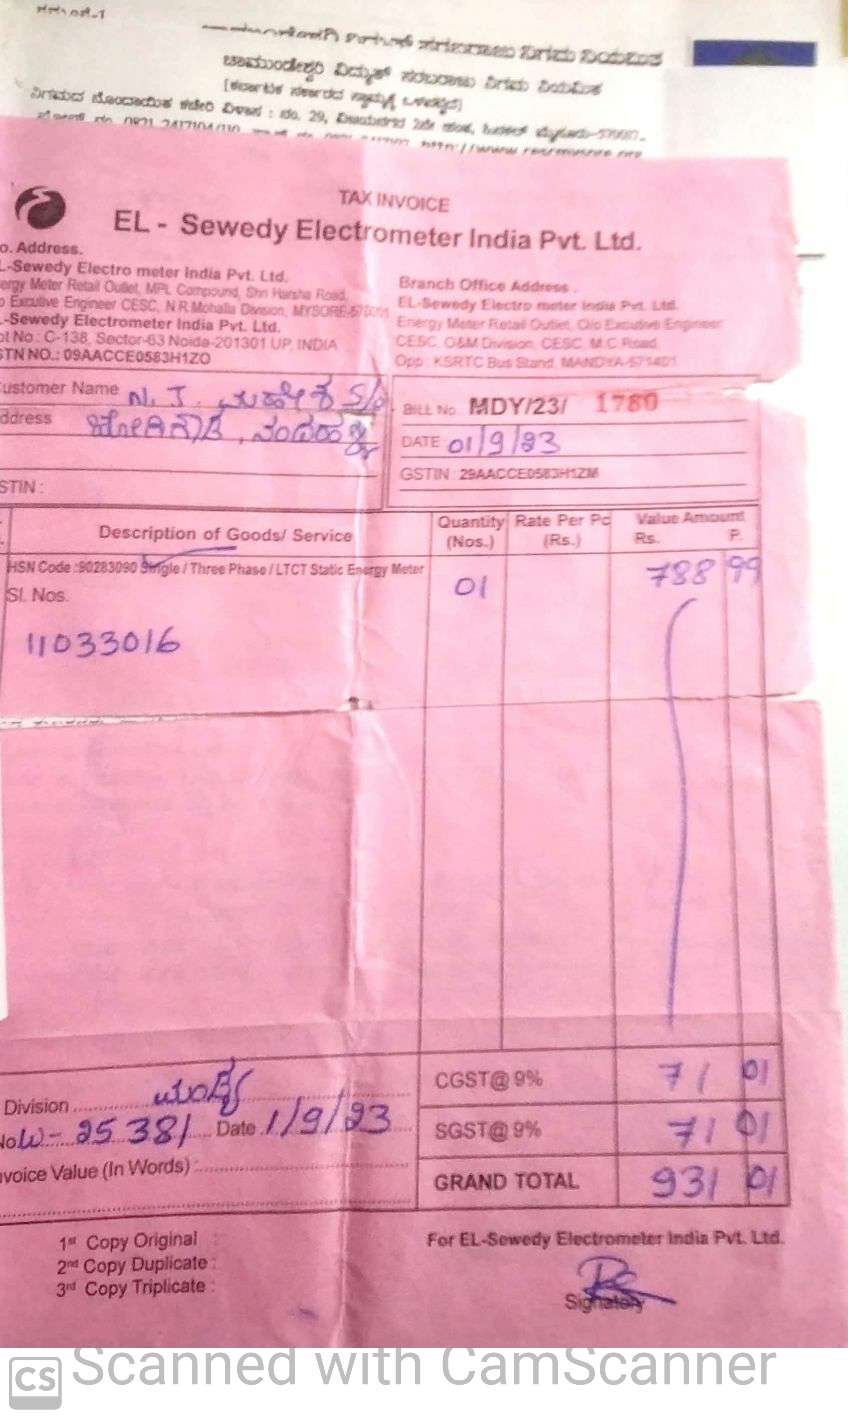 ಚಾಮುಂಡೇಶ್ವರಿ ವಿದ್ಯುತ್ ಸರಬರಾಜು ನಿಗಮ ನಿಯಮಿತ
(ಕರ್ನಾಟಕ ಸರ್ಕಾರದ ಸ್ವಾಮ್ಯಕ್ಕೆ ಒಳಪಟ್ಟಿದೆ)
ನಿಗಮದ ನೋಂದಾಯಿತ ಕಛೇರಿ ವಿಳಾಸ : ನಂ. 29, ವಿಜಯನಗರ 2ನೇ ಹಂತ, ಹಿನಕಲ್
0821-2417104/110
TAX INVOICE
EL - Sewedy Electrometer India Pvt. Ltd.
o. Address.
L-Sewedy Electro meter India Pvt. Ltd.
ergy Meter Retail Outlet, MPL Compound, Shri Harsha Road,
o Exicutive Engineer CESC, N.R.Mohalla Division, MYSORE-570001
-Sewedy Electrometer India Pvt. Ltd.
ot No : C-138, Sector-63 Noida-201301 UP, INDIA
STN NO.: 09AACCE0583H1ZO
Branch Office Address .
EL-Sewedy Electro meter India Pvt. Ltd.
Energy Meter Retail Outlet, O/o Exicutive Engineer
CESC, O&M Division, CESC, M.C Road,
Opp : KSRTC Bus Stand, MANDYA-571401
ustomer Name N. J. S/o
ddress
STIN :
BILL No. MDY/23/ 1780
DATE 01/9/23
GSTIN : 29AACCE0583H1ZM
Description of Goods/ Service Quantity (Nos.) Rate Per Pc (Rs.) Value Amount Rs. P.
HSN Code :90283090 Single / Three Phase / LTCT Static Energy Meter 01 788 99
Sl. Nos.
11033016
CGST@ 9% 71 01
Division ಮಂಡ್ಯ
No W- 25381 Date 1/9/23
SGST@ 9% 71 01
nvoice Value (In Words) :
GRAND TOTAL 931 01
1st Copy Original
2nd Copy Duplicate :
3rd Copy Triplicate :
For EL-Sewedy Electrometer India Pvt. Ltd.
Signatory
CS Scanned with CamScanner